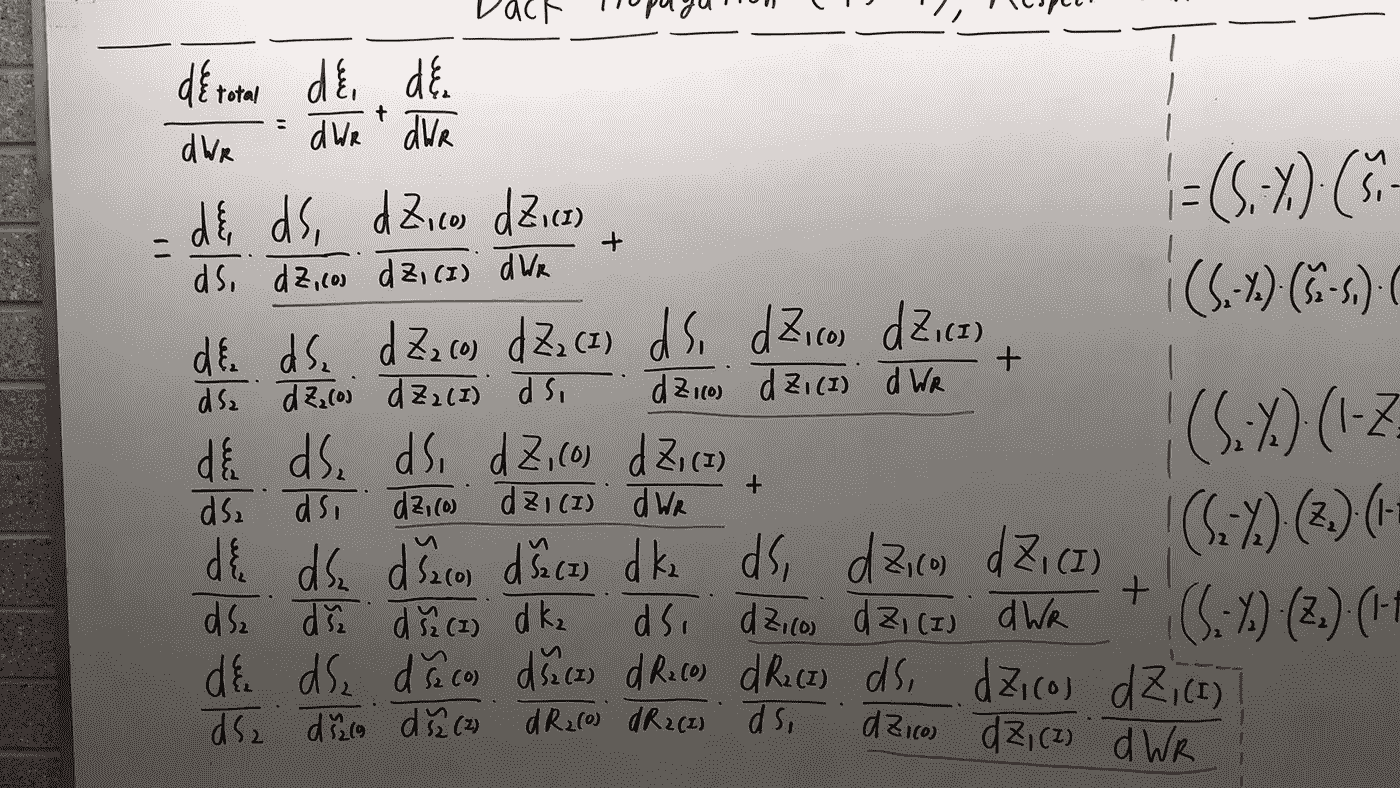 Back Propagation
dξtotal/dWR = dξ1/dWR + dξ2/dWR
= dξ1/dS1 · dS1/dZ1(O) · dZ1(O)/dZ1(I) · dZ1(I)/dWR +
dξ2/dS2 · dS2/dZ2(O) · dZ2(O)/dZ2(I) · dZ2(I)/dS1 · dS1/dZ1(O) · dZ1(O)/dZ1(I) · dZ1(I)/dWR +
dξ2/dS2 · dS2/dS1 · dS1/dZ1(O) · dZ1(O)/dZ1(I) · dZ1(I)/dWR +
dξ2/dS2 · dS2/dS̃2 · dS̃2(O)/dS̃2(I) · dS̃2(I)/dk2 · dk2/dS1 · dS1/dZ1(O) · dZ1(O)/dZ1(I) · dZ1(I)/dWR +
dξ2/dS2 · dS2/dS̃2(O) · dS̃2(O)/dS̃2(I) · dS̃2(I)/dR2(O) · dR2(O)/dR2(I) · dR2(I)/dS1 · dS1/dZ1(O) · dZ1(O)/dZ1(I) · dZ1(I)/dWR
=(S1-Y1)·(S̃1-
(S2-Y2)·(S̃2-S1)·(
(S2-Y2)·(1-Z2
(S2-Y2)·(Z2)·(1-
(S2-Y2)·(Z2)·(1-